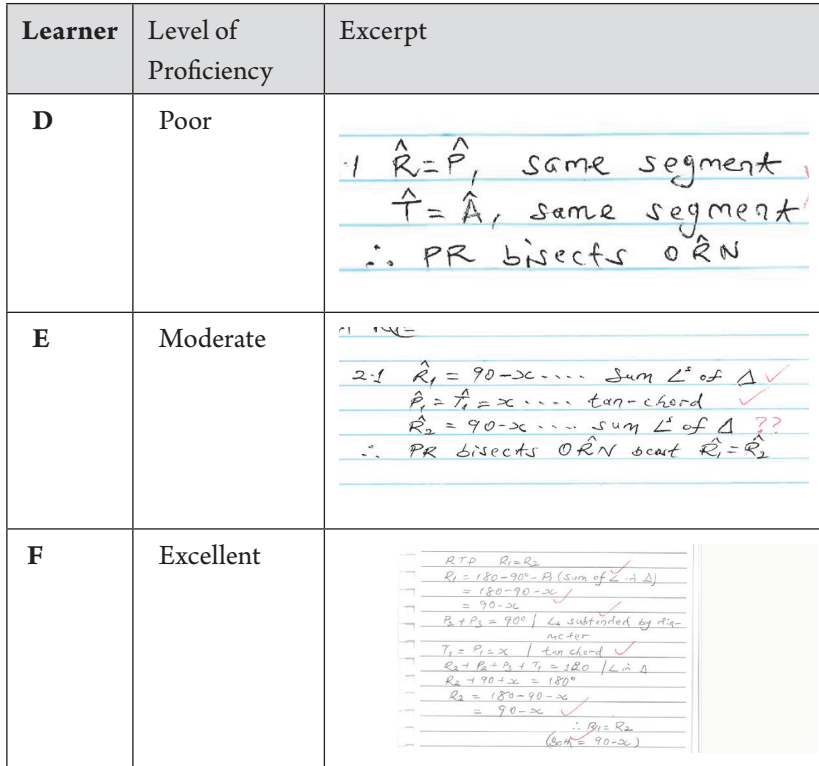 Learner Level of Proficiency Excerpt
D Poor
·1 R̂ = P̂, same segment
T̂ = Â, same segment
∴ PR bisects OR̂N
E Moderate
2.1 R̂₁ = 90-x .... Sum ∠ˢ of Δ ✓
P̂₁ = T̂₁ = x .... tan-chord ✓
R̂₂ = 90-x ... sum ∠ˢ of Δ ??
∴ PR bisects OR̂N R̂₁ = R̂₂
F Excellent
RTP R₁=R₂
R₁ = 180-90°-P₁ (Sum of ∠ in Δ)
= 180-90-x
= 90-x
P₂ + P₃ = 90° / ∠s subtended by diameter
T₁ = P₁ = x / tan chord
R₂ + P₂ + P₃ + T₁ = 180 / ∠ in Δ
R₂ + 90 + x = 180°
R₂ = 180-90-x
= 90-x
∴ R₁ = R₂
(Both = 90-x)